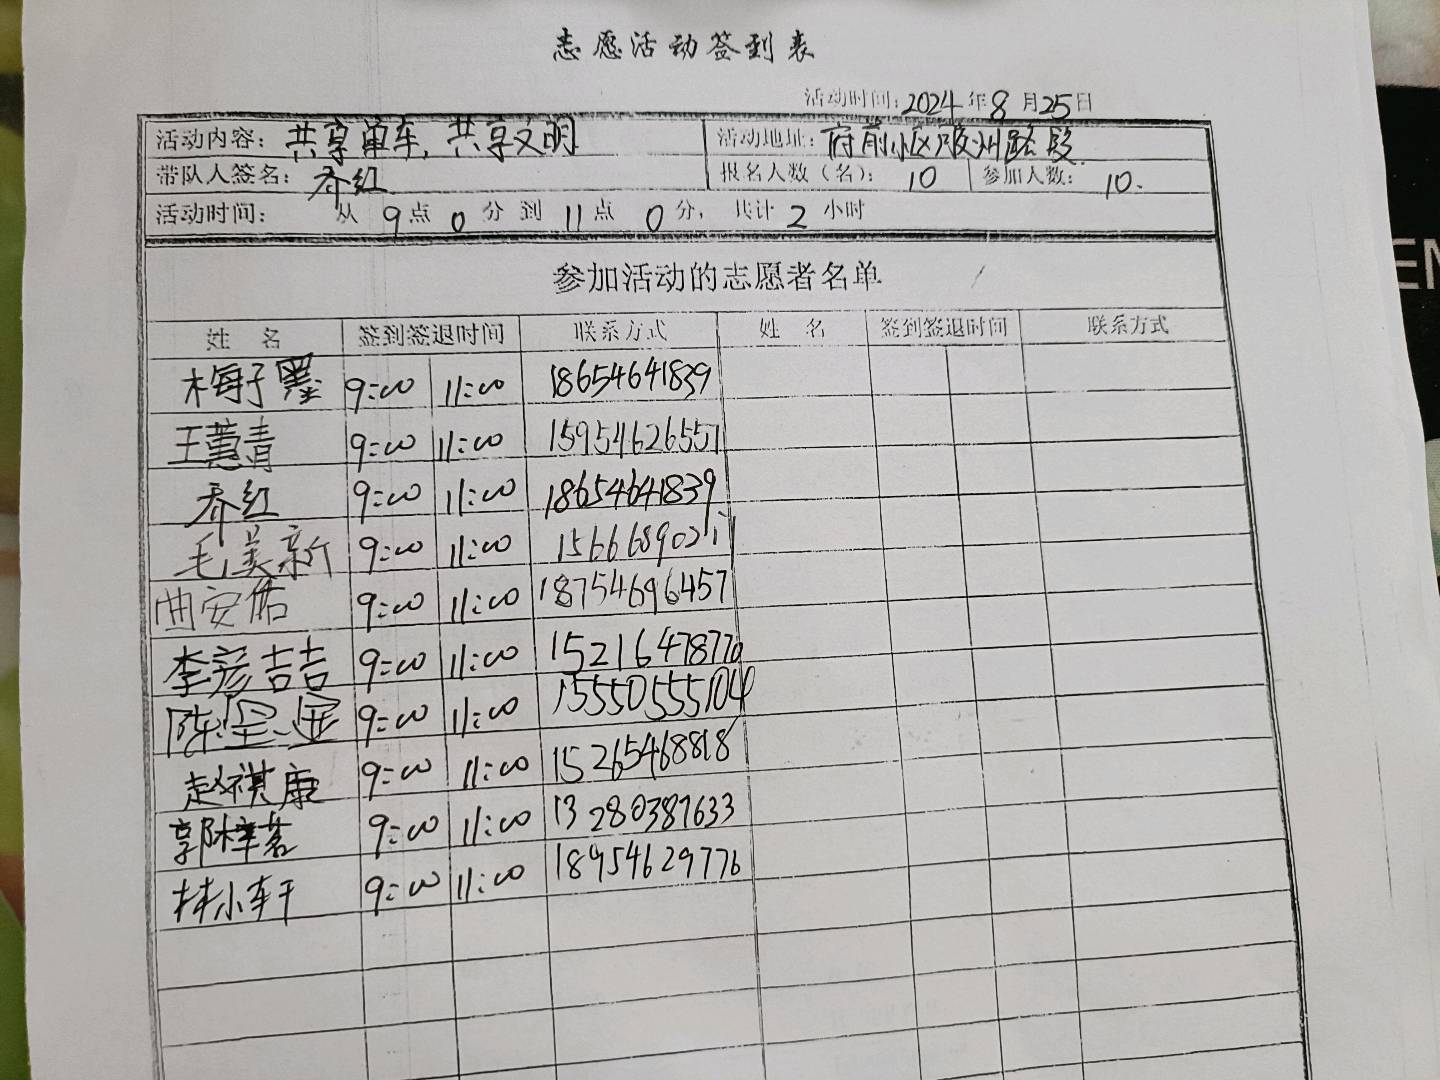 志愿活动签到表
活动时间：2024年8月25日
活动内容：共享单车，共享文明 活动地址：府前小区胶州路段
带队人签名：乔红 报名人数（名）：10 参加人数：10.
活动时间： 从9点0分到11点0分， 共计2小时
参加活动的志愿者名单
姓 名 签到签退时间 联系方式 姓 名 签到签退时间 联系方式
梅子墨 9:00 11:00 18654641839
王蕙青 9:00 11:00 15954626551
乔红 9:00 11:00 18654641839
毛美新 9:00 11:00
曲安佑 9:00 11:00 18754696457
李彦吉吉 9:00 11:00 15216478770
9:00 11:00 15550555104
赵祺康 9:00 11:00 15265468818
郭梓茗 9:00 11:00 13280387633
林小轩 9:00 11:00 18954629776
EN